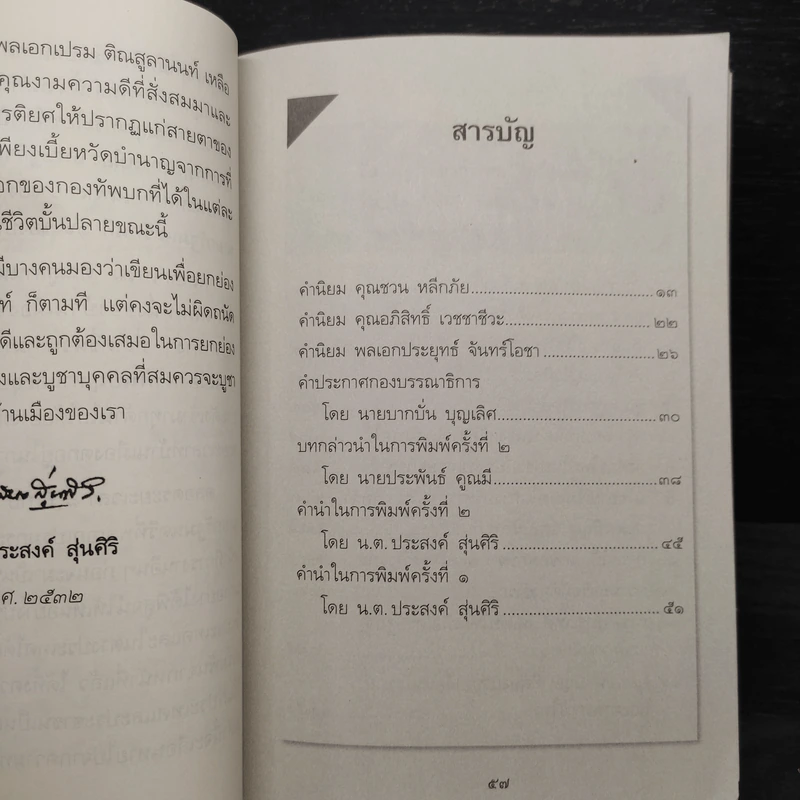 พลเอกเปรม ติณสูลานนท์ เหลือ
คุณงามความดีที่สั่งสมมาและ
รติยศให้ปรากฏแก่สายตาของ
พียงเบี้ยหวัดบำนาญจากการที่
อกของกองทัพบกที่ได้ในแต่ละ
ชีวิตบั้นปลายขณะนี้
มีบางคนมองว่าเขียนเพื่อยกย่อง
ท์ ก็ตามที แต่คงจะไม่ผิดถนัด
ดีและถูกต้องเสมอในการยกย่อง
งและบูชาบุคคลที่สมควรจะบูชา
้านเมืองของเรา
ระสงค์ สุ่นศิริ
ศ. ๒๕๓๒
สารบัญ
คำนิยม คุณชวน หลีกภัย ๑๓
คำนิยม คุณอภิสิทธิ์ เวชชาชีวะ ๒๒
คำนิยม พลเอกประยุทธ์ จันทร์โอชา ๒๖
คำประกาศกองบรรณาธิการ
โดย นายบากบั่น บุญเลิศ ๓๐
บทกล่าวนำในการพิมพ์ครั้งที่ ๒
โดย นายประพันธ์ คูณมี ๓๘
คำนำในการพิมพ์ครั้งที่ ๒
โดย น.ต. ประสงค์ สุ่นศิริ ๔๕
คำนำในการพิมพ์ครั้งที่ ๑
โดย น.ต. ประสงค์ สุ่นศิริ ๕๑
๕๗